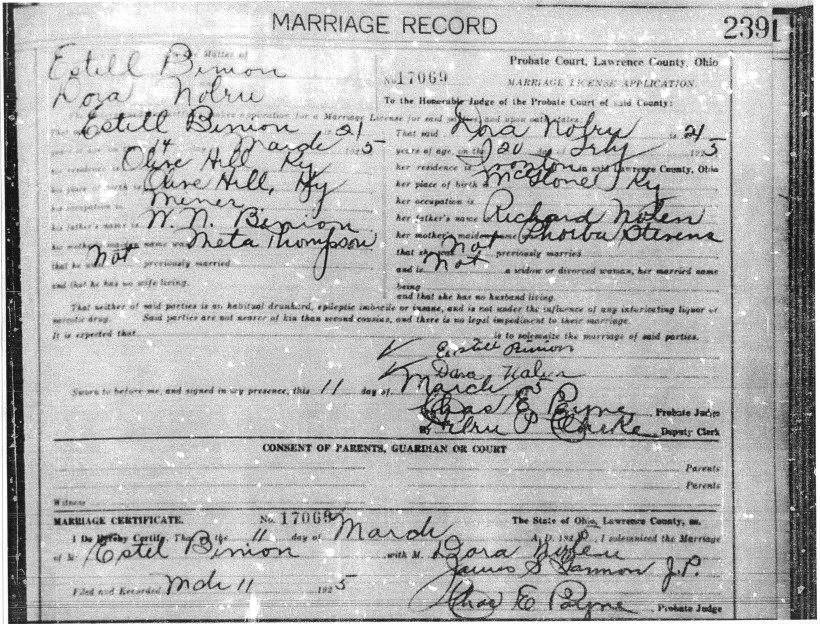 MARRIAGE RECORD
239
Estell Binion
Dora
Probate Court, Lawrence County, Ohio
No. 17069
MARRIAGE LICENSE APPLICATION.
To the Honorable Judge of the Probate Court of said County:
application for a Marriage License for said parties, and upon oath states:
Estell Binion is 21
years of age, on the 14 day of March 1925
his residence is Olive Hill Ky
his place of birth is Olive Hill, Ky
his occupation is Miner
his father's name W. N. Binion
his mother's maiden name was Meta Thompson
that he was Not previously married
and that he has no wife living.
That said Dora is 21
years of age, on the 20 day of 1925
her residence is in said Lawrence County, Ohio
her place of birth is McGlone Ky
her occupation is
her father's name Richard Nolen
her mother's maiden name Phoeba Stevens
that she was Not previously married
and is Not a widow or divorced woman, her married name
being
and that she has no husband living.
That neither of said parties is an habitual drunkard, epileptic imbecile or insane, and is not under the influence of any intoxicating liquor or
narcotic drug. Said parties are not nearer of kin than second cousins, and there is no legal impediment to their marriage.
It is expected that is to solemnize the marriage of said parties.
Estill Binion
Dora Nolen
Sworn to before me, and signed in my presence, this 11 day of March 5
Chas E Payne, Probate Judge
By P Clarke, Deputy Clerk
CONSENT OF PARENTS, GUARDIAN OR COURT
Parents
Parents
Witness
MARRIAGE CERTIFICATE. No. 17069 The State of Ohio, Lawrence County, ss.
I Do Hereby Certify, That on the 11 day of March A. D. 192 , I solemnized the Marriage
of M Estel Binion with M Dora
James S J.P.
Filed and Recorded Mch 11 1925
Chas E Payne, Probate Judge